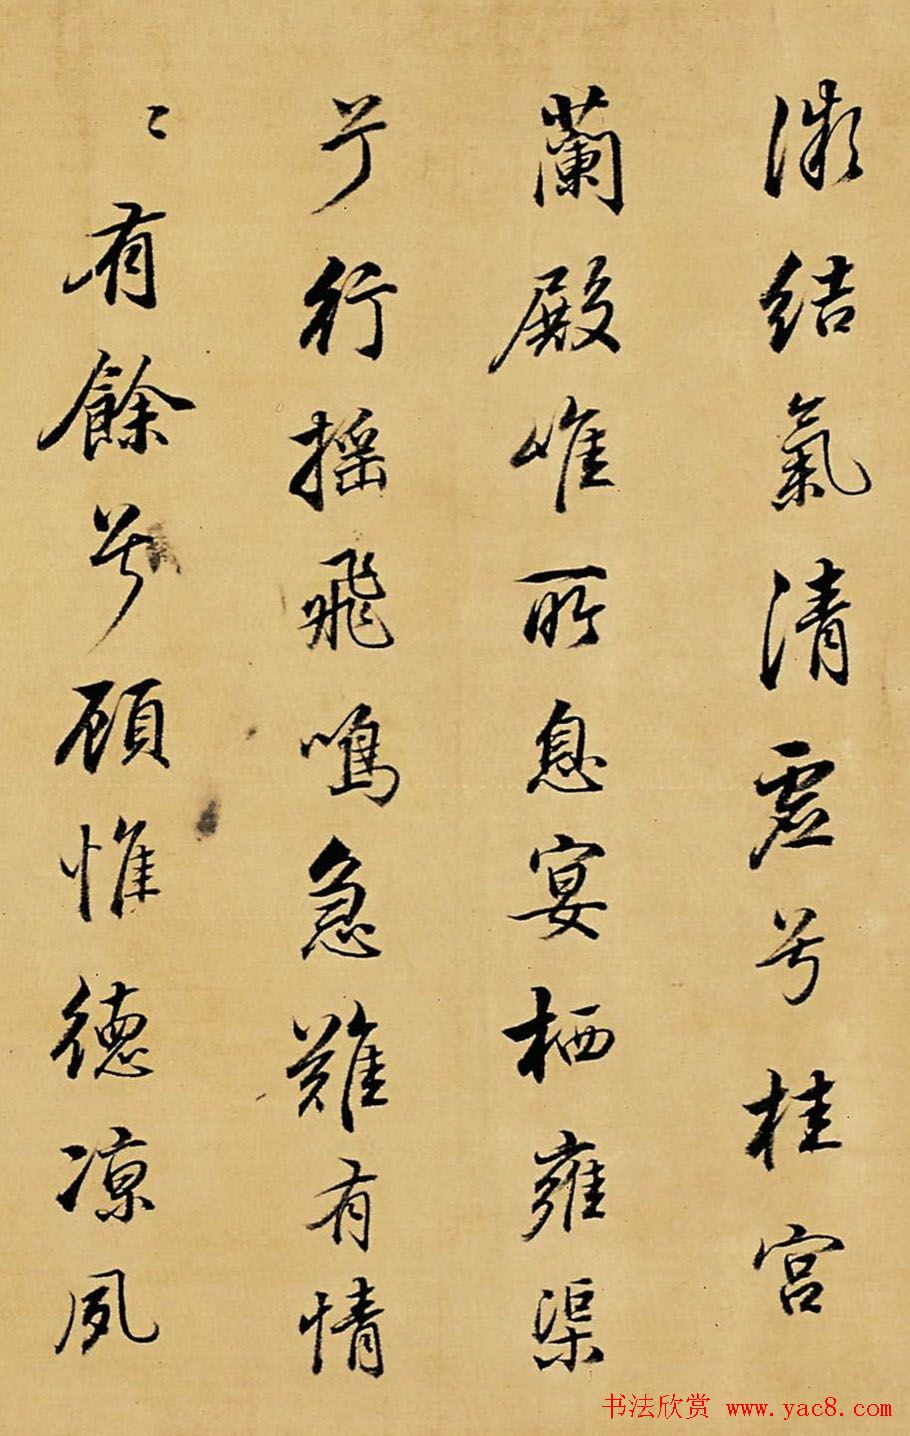 微結氣清虚兮桂宫
蘭殿唯所息宴栖雍渠
兮行摇飛鳴急難有情
々有餘兮顧惟德凉夙
书法欣赏 www.yac8.com